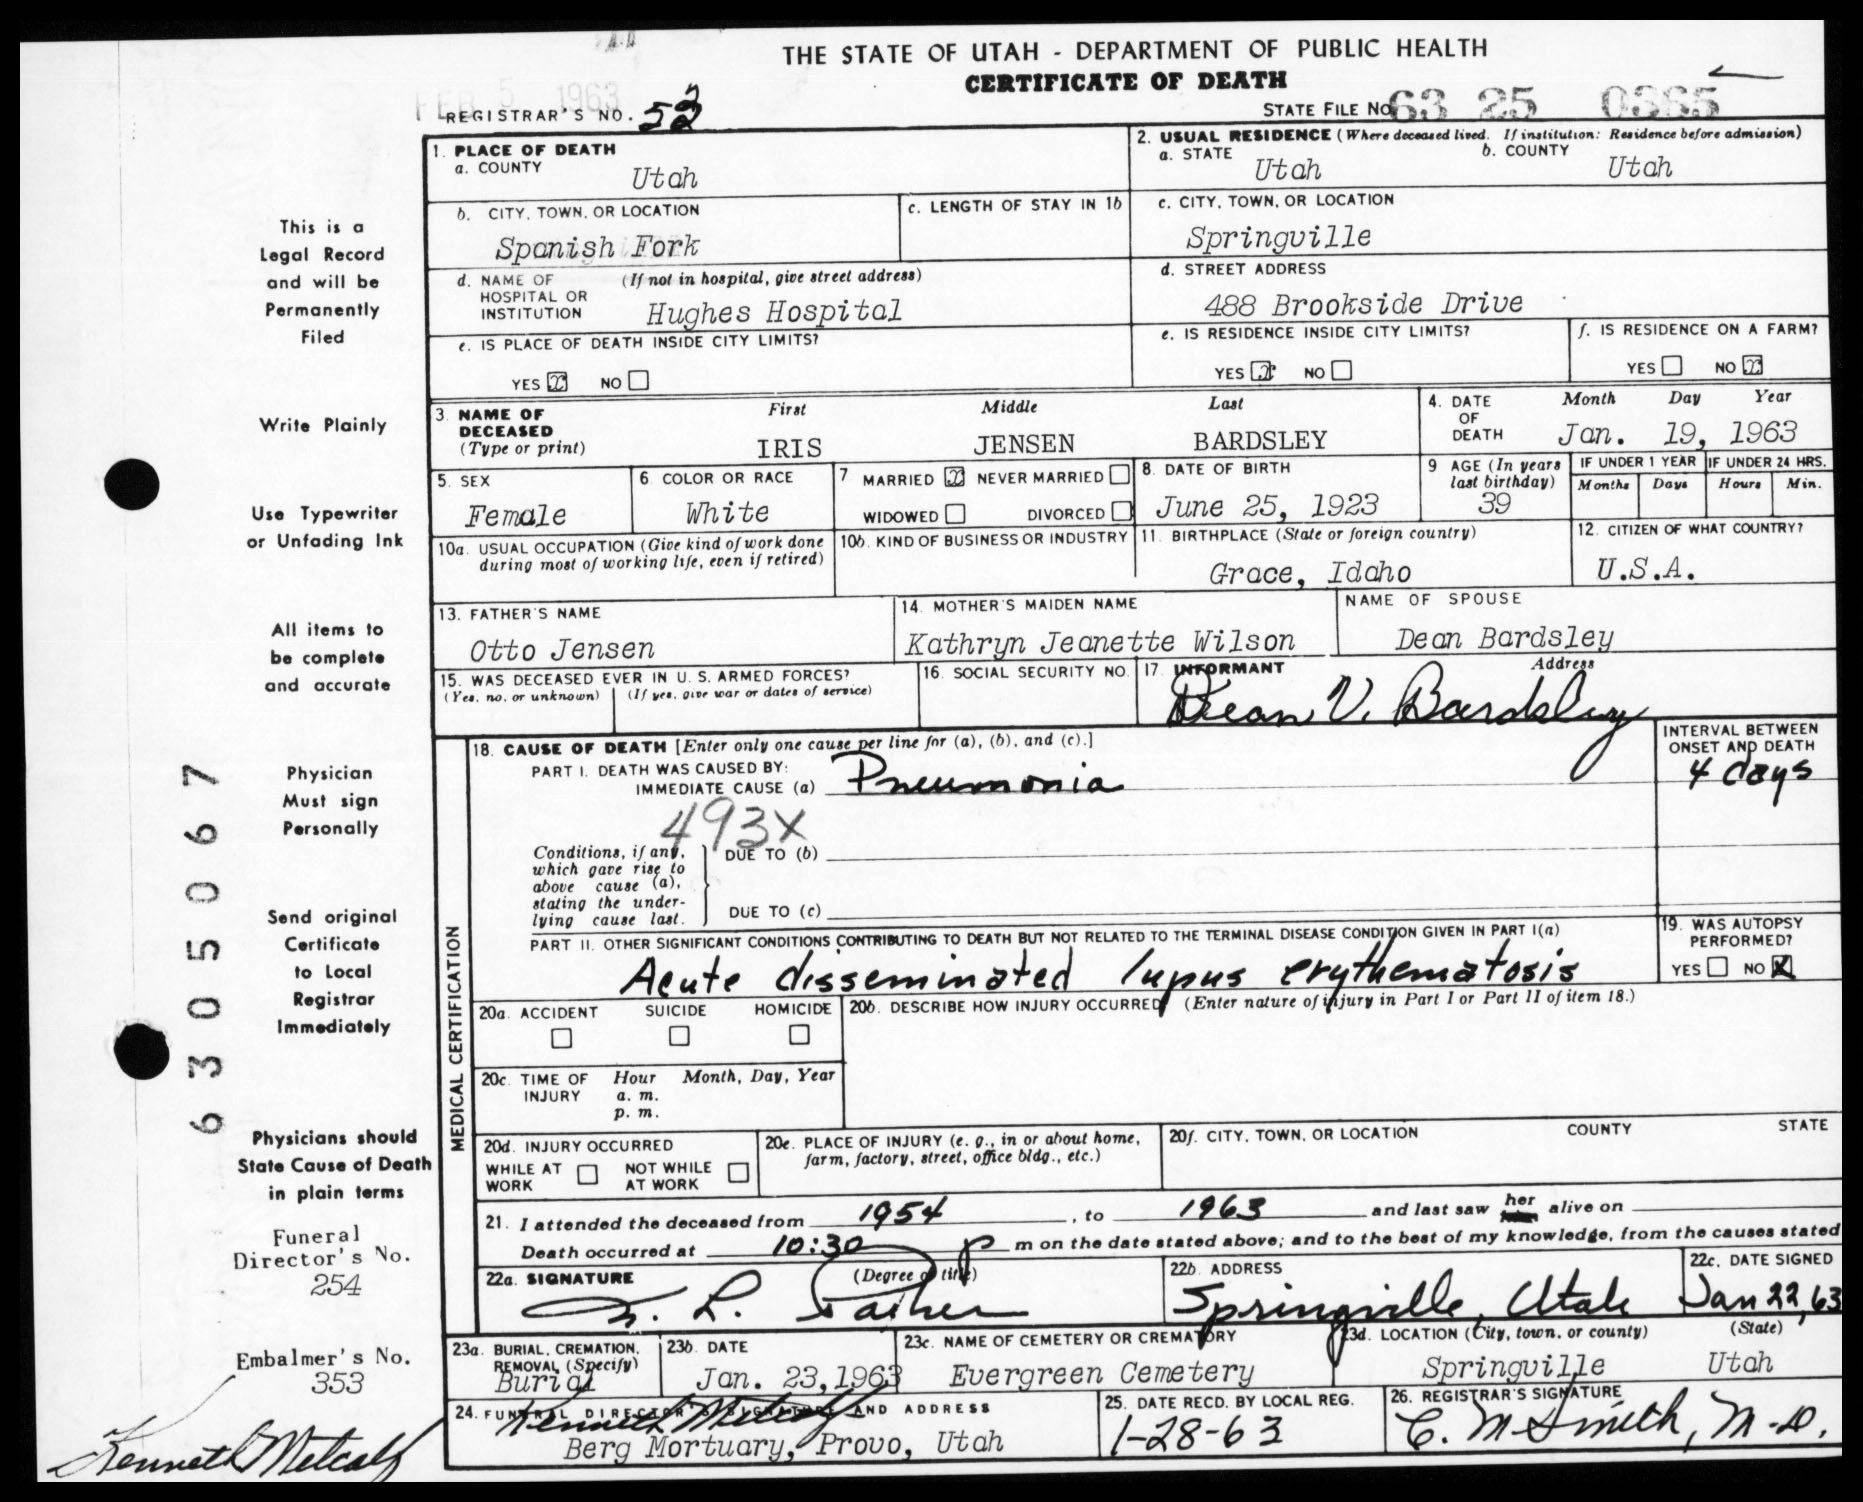 THE STATE OF UTAH - DEPARTMENT OF PUBLIC HEALTH
CERTIFICATE OF DEATH
FEB 5 1963
REGISTRAR'S NO. 52
STATE FILE NO. 63 25 0365
This is a
Legal Record
and will be
Permanently
Filed
Write Plainly
Use Typewriter
or Unfading Ink
All items to
be complete
and accurate
Physician
Must sign
Personally
Send original
Certificate
to Local
Registrar
Immediately
Physicians should
State Cause of Death
in plain terms
Funeral
Director's No.
254
Embalmer's No.
353
Kenneth Metcalf
6305067
1. PLACE OF DEATH
a. COUNTY
Utah
b. CITY, TOWN, OR LOCATION
Spanish Fork
c. LENGTH OF STAY IN 1b
d. NAME OF HOSPITAL OR INSTITUTION (If not in hospital, give street address)
Hughes Hospital
e. IS PLACE OF DEATH INSIDE CITY LIMITS?
YES x NO
2. USUAL RESIDENCE (Where deceased lived. If institution: Residence before admission)
a. STATE
Utah
b. COUNTY
Utah
c. CITY, TOWN, OR LOCATION
Springville
d. STREET ADDRESS
488 Brookside Drive
e. IS RESIDENCE INSIDE CITY LIMITS?
YES x NO
f. IS RESIDENCE ON A FARM?
YES NO x
3. NAME OF DECEASED (Type or print)
First Middle Last
IRIS JENSEN BARDSLEY
4. DATE OF DEATH
Month Day Year
Jan. 19, 1963
5. SEX
Female
6. COLOR OR RACE
White
7 MARRIED x NEVER MARRIED
WIDOWED DIVORCED
8. DATE OF BIRTH
June 25, 1923
9 AGE (In years last birthday)
39
IF UNDER 1 YEAR
Months Days
IF UNDER 24 HRS.
Hours Min.
10a. USUAL OCCUPATION (Give kind of work done during most of working life, even if retired)
10b. KIND OF BUSINESS OR INDUSTRY
11. BIRTHPLACE (State or foreign country)
Grace, Idaho
12. CITIZEN OF WHAT COUNTRY?
U.S.A.
13. FATHER'S NAME
Otto Jensen
14. MOTHER'S MAIDEN NAME
Kathryn Jeanette Wilson
NAME OF SPOUSE
Dean Bardsley
15. WAS DECEASED EVER IN U. S. ARMED FORCES?
(Yes, no, or unknown) (If yes, give war or dates of service)
16. SOCIAL SECURITY NO.
17. INFORMANT Address
Dean V. Bardsley
MEDICAL CERTIFICATION
18. CAUSE OF DEATH [Enter only one cause per line for (a), (b), and (c).]
PART I. DEATH WAS CAUSED BY:
IMMEDIATE CAUSE (a) Pneumonia
INTERVAL BETWEEN ONSET AND DEATH
4 days
493X
Conditions, if any, which gave rise to above cause (a), stating the underlying cause last.
DUE TO (b)
DUE TO (c)
PART II. OTHER SIGNIFICANT CONDITIONS CONTRIBUTING TO DEATH BUT NOT RELATED TO THE TERMINAL DISEASE CONDITION GIVEN IN PART I(a)
Acute disseminated lupus erythematosis
19. WAS AUTOPSY PERFORMED?
YES NO X
20a. ACCIDENT SUICIDE HOMICIDE
20b. DESCRIBE HOW INJURY OCCURRED (Enter nature of injury in Part I or Part II of item 18.)
20c. TIME OF INJURY
Hour Month, Day, Year
a. m.
p. m.
20d. INJURY OCCURRED
WHILE AT WORK NOT WHILE AT WORK
20e. PLACE OF INJURY (e. g., in or about home, farm, factory, street, office bldg., etc.)
20f. CITY, TOWN, OR LOCATION COUNTY STATE
21. I attended the deceased from 1954, to 1963 and last saw her alive on
Death occurred at 10:30 p m on the date stated above; and to the best of my knowledge, from the causes stated
22a. SIGNATURE (Degree or title)
22b. ADDRESS
Springville, Utah
22c. DATE SIGNED
Jan 22, 63
23a. BURIAL, CREMATION, REMOVAL (Specify)
Burial
23b. DATE
Jan. 23, 1963
23c. NAME OF CEMETERY OR CREMATORY
Evergreen Cemetery
23d. LOCATION (City, town, or county) (State)
Springville Utah
24. FUNERAL DIRECTOR'S SIGNATURE AND ADDRESS
Kenneth Metcalf
Berg Mortuary, Provo, Utah
25. DATE RECD. BY LOCAL REG.
1-28-63
26. REGISTRAR'S SIGNATURE
C. M Smith, M-D.